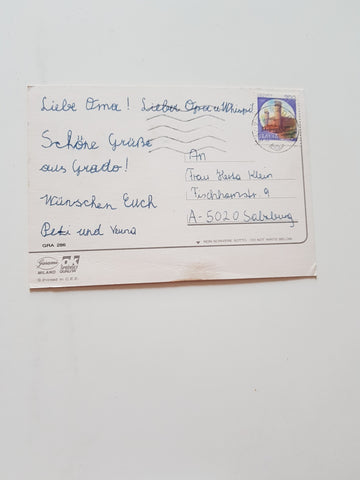 Liebe Oma! Lieber Opa u Whuspi!
Schöne Grüße
aus Grado!
Wünschen Euch
Peti und Verena
An
Frau Herta Klein
A-5020 Salzburg
GRA 286
NON SCRIVERE SOTTO - DO NOT WRITE BELOW
MILANO
ITALIA